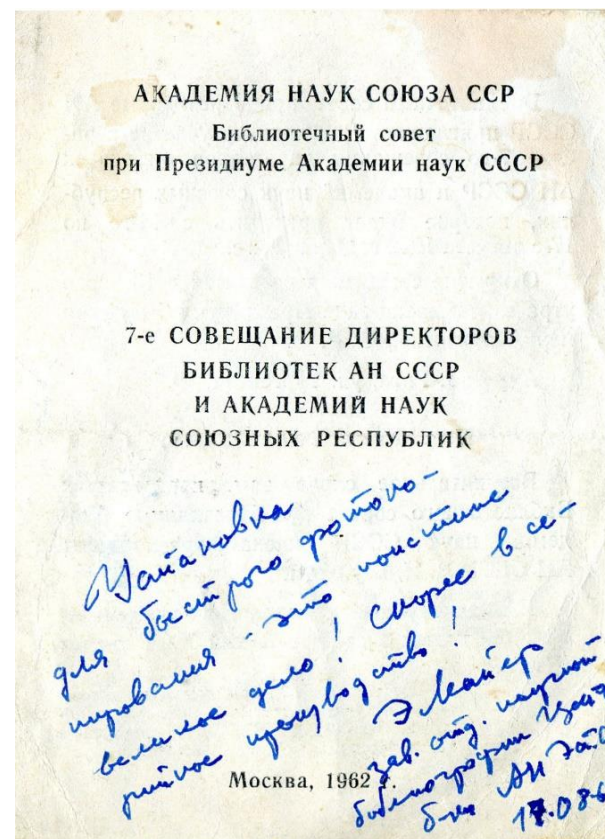 АКАДЕМИЯ НАУК СОЮЗА ССР
Библиотечный совет
при Президиуме Академии наук СССР
7-е СОВЕЩАНИЕ ДИРЕКТОРОВ
БИБЛИОТЕК АН СССР
И АКАДЕМИЙ НАУК
СОЮЗНЫХ РЕСПУБЛИК
Установка
для быстрого фотоко-
пирования - это поистине
великое дело! Скорее в се-
рийное производство!
Э Майер
зав. отд. научной
библиографии
б-ки АН
Москва, 1962 г.